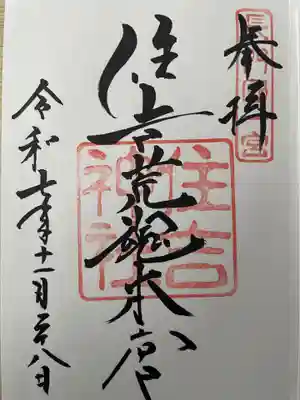 奉拝
住吉荒魂本宮
住吉
神社
令和七年十一月二十八日